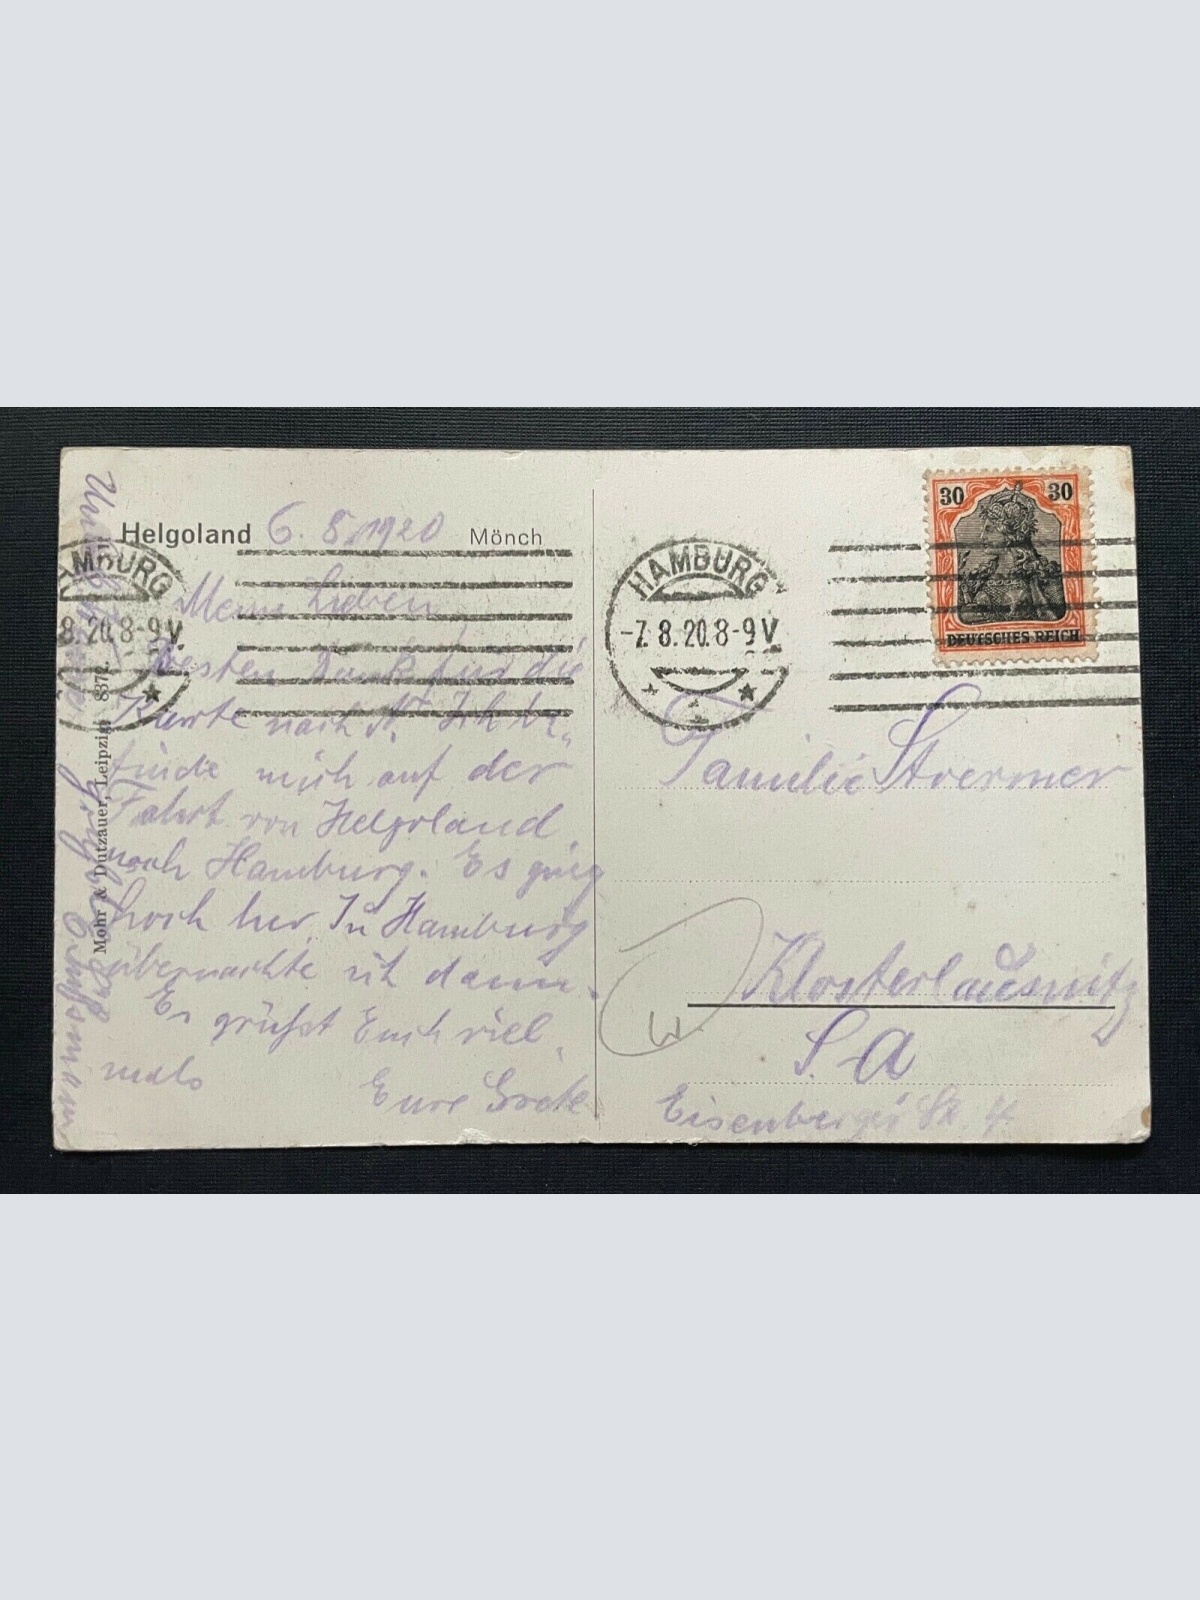 Helgoland 6. 8. 1920 Mönch
HAMBURG
-7.8.20.8-9V
AMBURG
8.20.8-9V
30 30
DEUTSCHES REICH
Meine Lieben,
Besten Dank für die
Karte nach N. Ich be„
finde mich auf der
Fahrt von Helgoland
nach Hamburg. Es ging
hoch her. In Hamburg
übernachte ich dann.
Es grüßt Euch viel„
mals
Eure Grete
Mohr & Dutzauer, Leipzig. 837
Familie Stoermer
Klosterlausnitz
S.-A
Eisenberger Str. 4